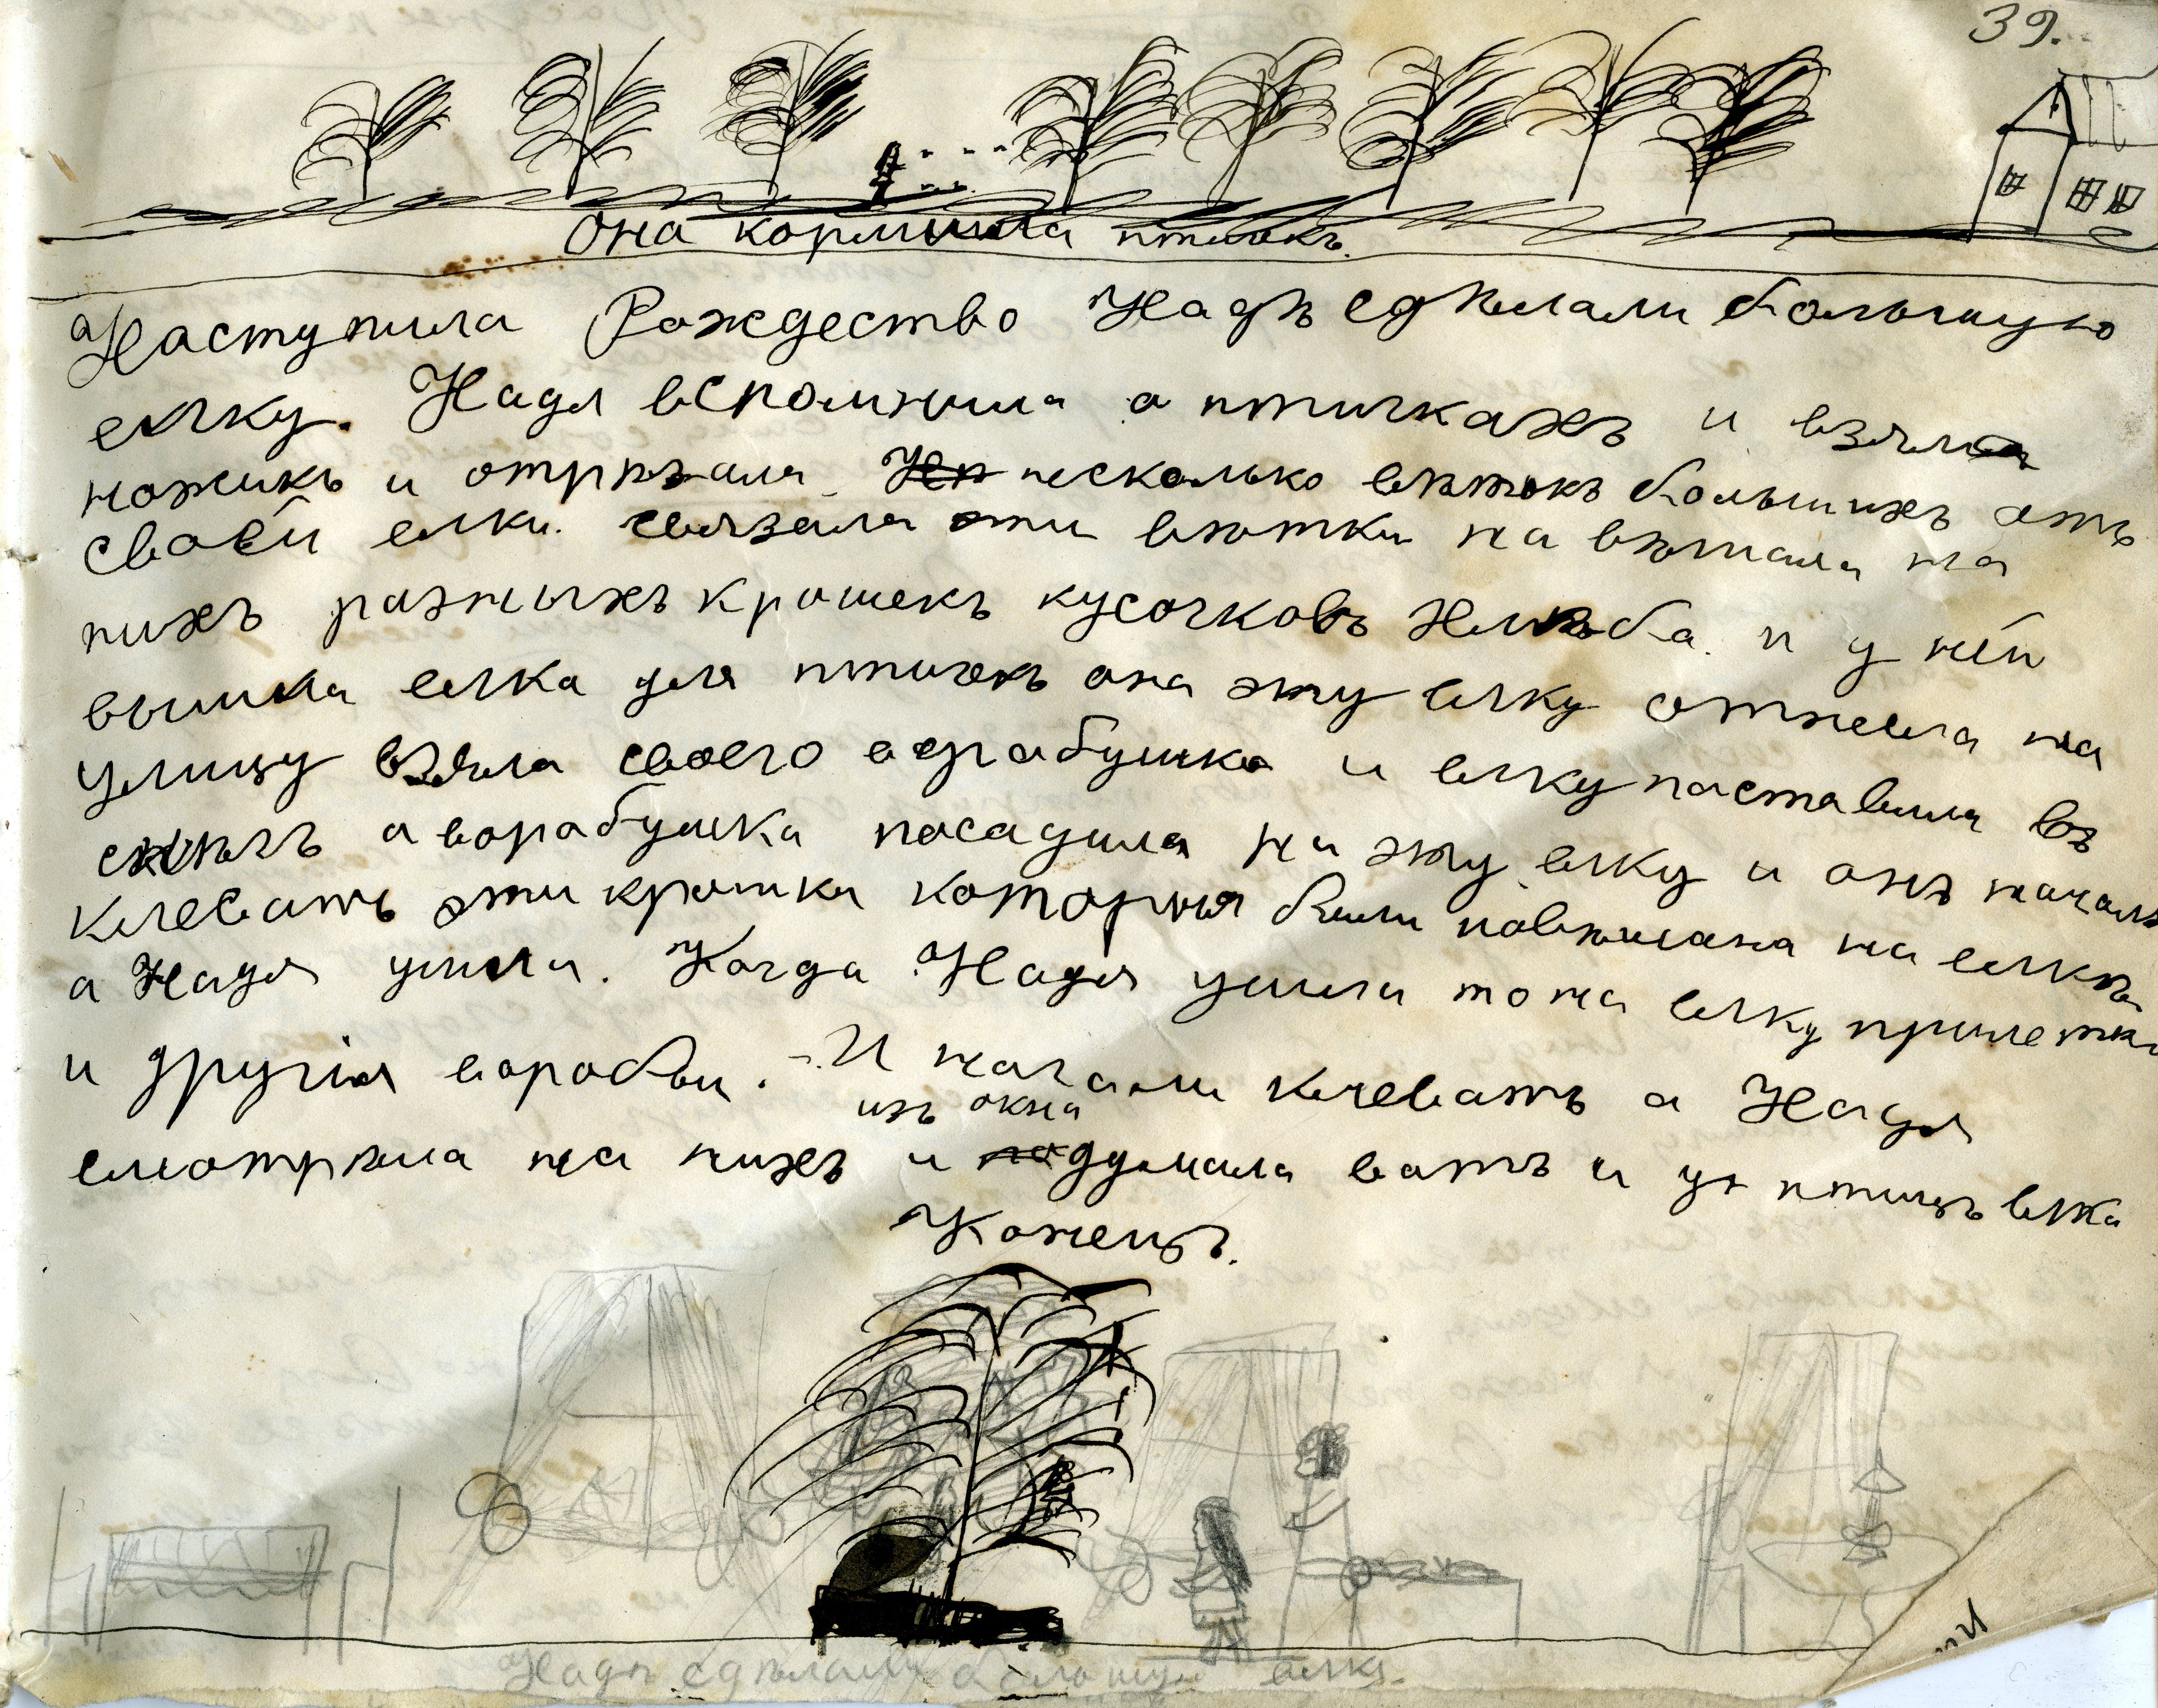 39.
Она кормила птичекъ.
Наступила Рождество Надѣ сдѣлали большую
елку. Надя вспомнила о птичкахъ и взяла
ножикъ и отрѣзала несколько вѣтокъ большихъ отъ
своей елки. связала эти вѣтки на вѣшала на
нихъ разныхъ крошекъ кусочковъ хлѣба. и у ней
вышла елка для птичекъ она эту елку отнесла на
улицу взяла своего воробушка и елку поставила въ
снѣгъ а воробушка посадила на эту елку и онъ началъ
клевать эти крошки которыя были повѣшана на елкѣ
а Надя ушла. Когда Надя ушла то на елку прилетѣли
и другія воробьи. И начали клевать а Надя
изъ окна
смотрѣла на нихъ и подумала вотъ и у птицъ елка
Конецъ.
Надѣ сдѣлали большую елку.